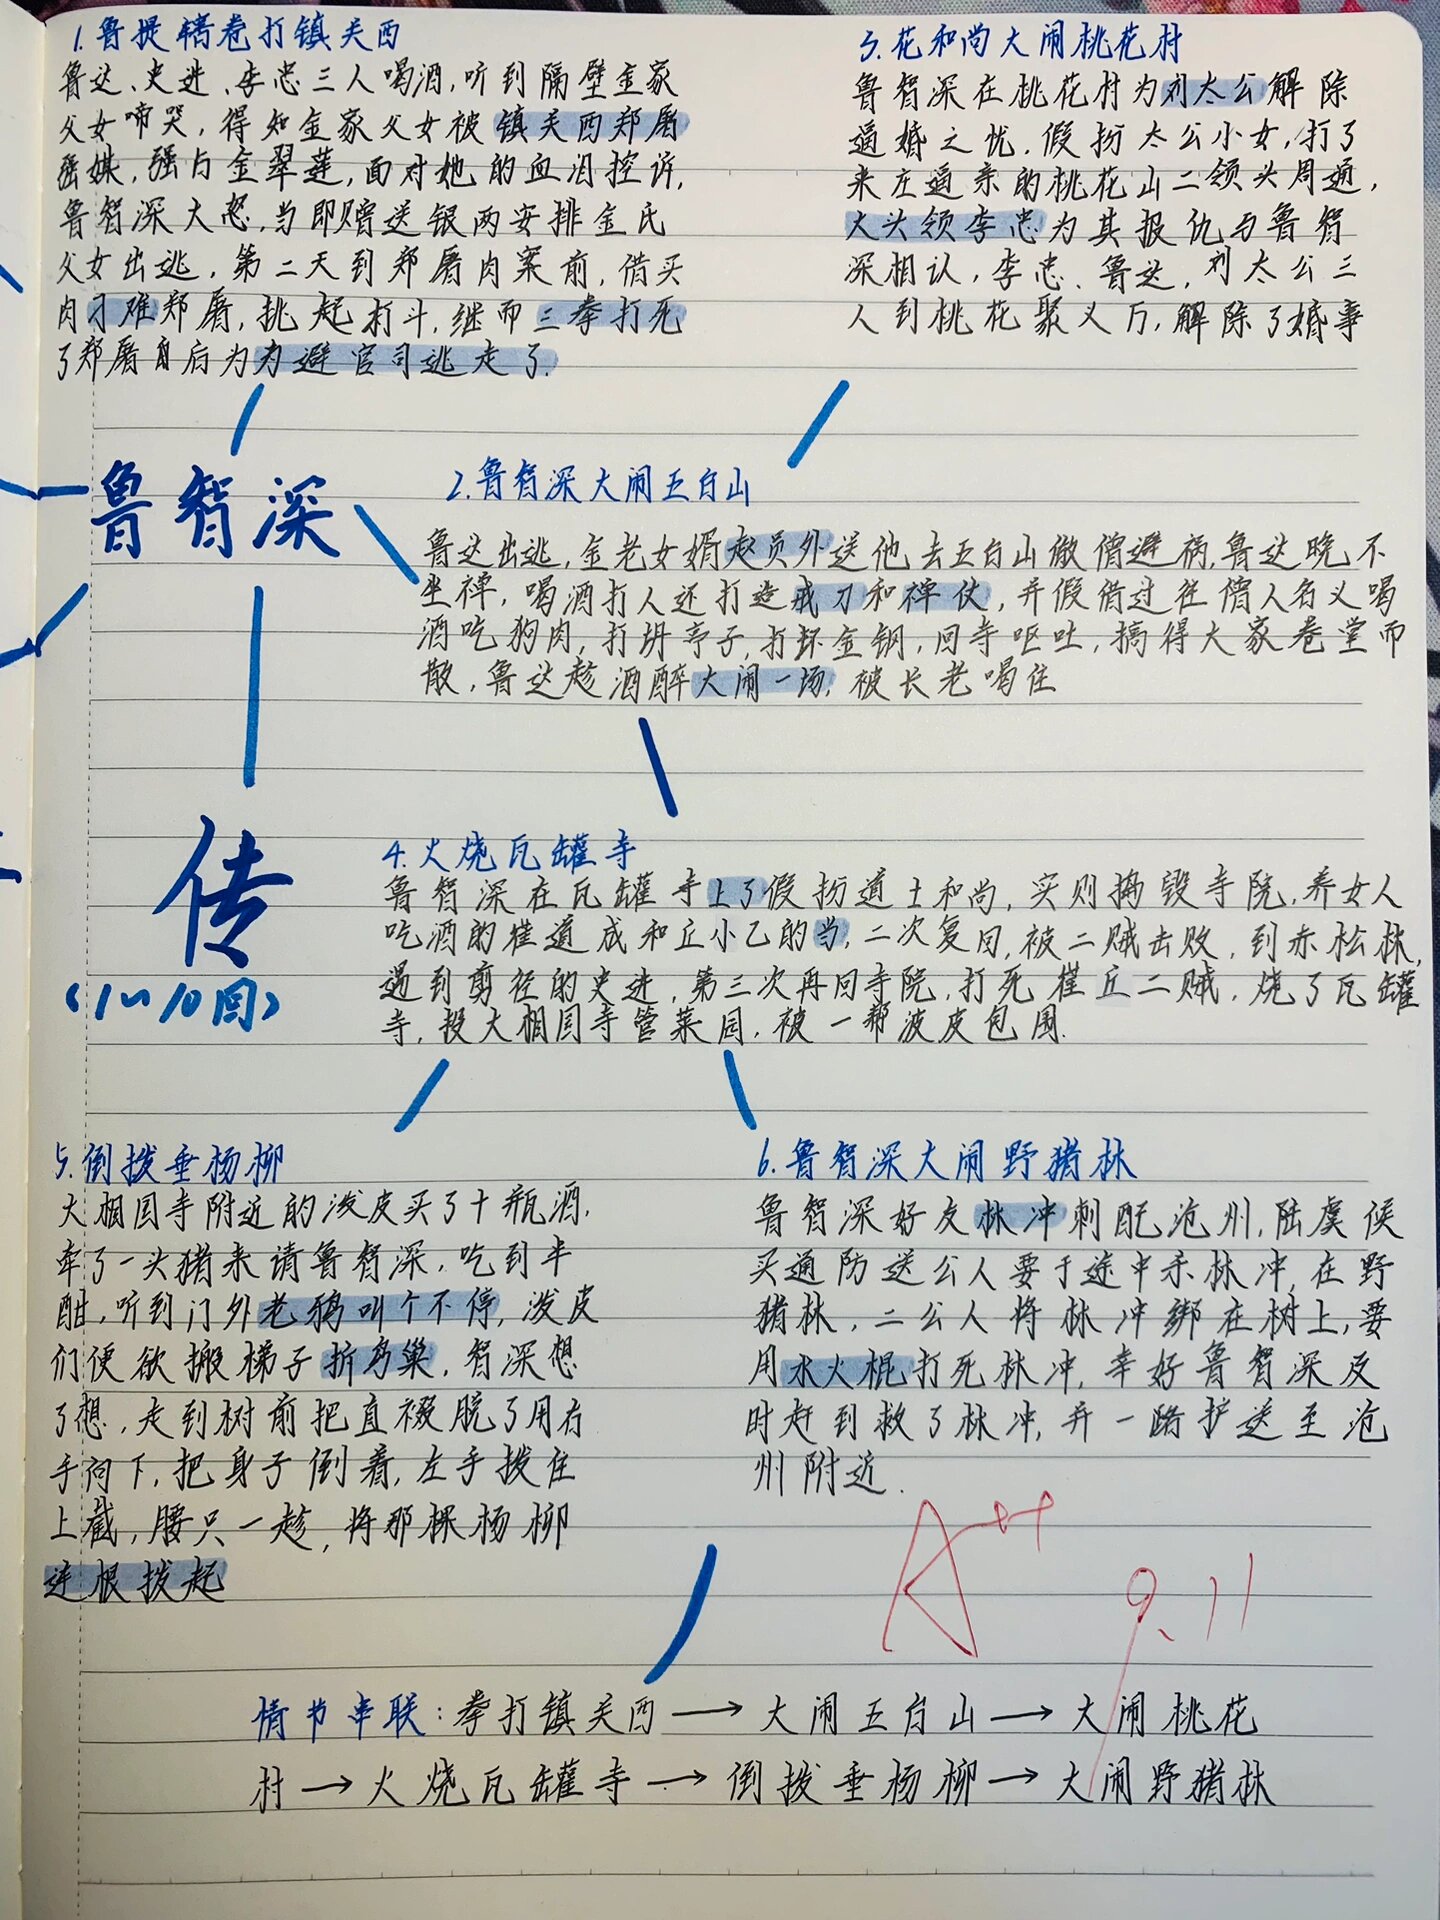 1.鲁提辖卷打镇关西
鲁达、史进、李忠三人喝酒,听到隔壁金家
父女啼哭,得知金家父女被镇关西郑屠
强媒,强占金翠莲,面对她的血泪控诉,
鲁智深大怒,当即赠送银两安排金氏
父女出逃,第二天到郑屠肉案前,借买
肉刁难郑屠,挑起打斗,继而三拳打死
了郑屠自后为为避官司逃走了.
3.花和尚大闹桃花村
鲁智深在桃花村为刘太公解除
逼婚之忧.假扮太公小女,打了
来庄逼亲的桃花山二领头周通,
大头领李忠为其报仇与鲁智
深相认,李忠、鲁达,刘太公三
人到桃花聚义厅,解除了婚事
鲁智深
传
(1~10回)
2.鲁智深大闹五台山
鲁达出逃,金老女婿赵员外送他去五台山做僧避祸,鲁达晚不
坐禅,喝酒打人还打造戒刀和禅仗,并假借过往僧人名义喝
酒吃狗肉,打坍亭子,打坏金钢,回寺呕吐,搞得大家卷堂而
散,鲁达趁酒醉大闹一场,被长老喝住
4.火烧瓦罐寺
鲁智深在瓦罐寺上了假扮道士和尚,实则捣毁寺院,养女人
吃酒的崔道成和丘小乙的当,二次复回,被二贼击败,到赤松林,
遇到剪径的史进,第三次再回寺院,打死崔丘二贼,烧了瓦罐
寺,投大相国寺管菜园,被一帮波皮包围.
5.倒拨垂杨柳
大相国寺附近的泼皮买了十瓶酒,
牵了一头猪来请鲁智深,吃到半
酣,听到门外老鸦叫个不停,泼皮
们便欲搬梯子折鸟巢,智深想
了想,走到树前把直裰脱了用右
手向下,把身子倒着,左手拨住
上截,腰只一趁,将那棵杨柳
连根拨起
6.鲁智深大闹野猪林
鲁智深好友林冲刺配沧州,陆虞候
买通防送公人要于途中杀林冲,在野
猪林,二公人将林冲绑在树上,要
用水火棍打死林冲,幸好鲁智深及
时赶到救了林冲,并一路护送至沧
州附近.
A++
9.11
情节串联:拳打镇关西→大闹五台山→大闹桃花
村→火烧瓦罐寺→倒拨垂杨柳→大闹野猪林